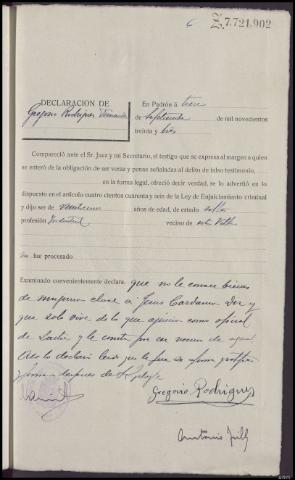 6 Z.7.721.902
DECLARACION DE
Gregorio Rodriguez Fernandez
En Padrón á trece
de Septiembre de mil novecientos
treinta y tres
Compareció ante el Sr. Juez y mi Secretario, el testigo que se expresa al margen a quien
se enteró de la obligación de ser veraz y penas señaladas al delito de falso testimonio,
en la forma legal, ofreció decir verdad, se lo advertió en lo
dispuesto en el artículo cuatro cientos cuarenta y seis de la Ley de Enjuiciamiento criminal
y dijo ser de años de edad, de estado
profesión Industrial vecino de esta Villa
ha sido procesado.
Examinado convenientemente declara: que no le conoce bienes
de ninguna clase a Jesus Cardama Dor y
que solo vive de lo que como oficial
de Sastre y le consta por ser vecino de aquel
Leida lo declara leida que le fue se afirma ratifica
y firma despues de S. Sª doy fe
Gregorio Rodriguez
Antonio